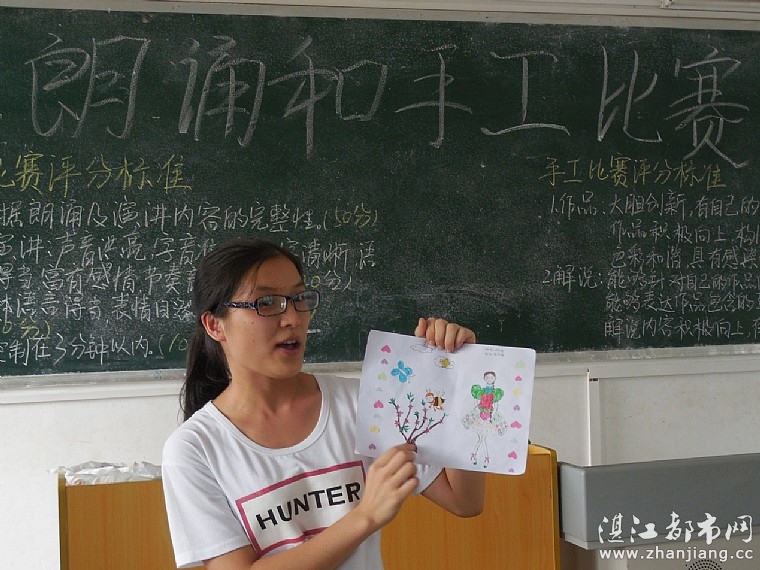 朗诵和手工比赛
比赛评分标准
据朗诵及演讲内容的完整性。(50分)
演讲:声音洪亮,字音
清晰,语
得当,富有感情,节奏
体语言得当,表情自
控制在3分钟以内。(10
手工比赛评分标准
1.作品:大胆创新,有自己的
作品积极向上,构
色彩和谐,具有感染
2.解说:能够对自己的作品
能够表达作品包含的
解说内容积极向上,
HUNTER
湛江都市网
www.zhanjiang.cc